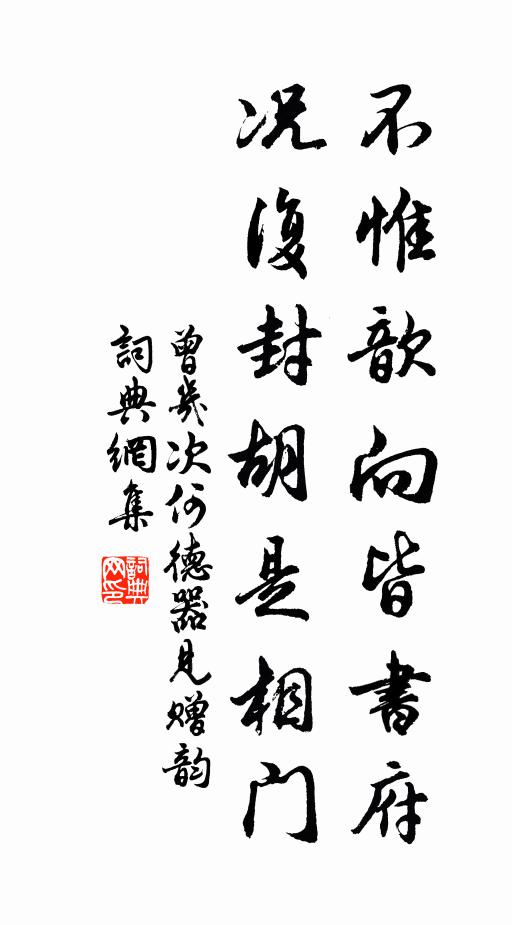 不惟歆向皆書府
况復封胡是相門
曾幾次何德器見贈韵
詞典網集
詞典网印